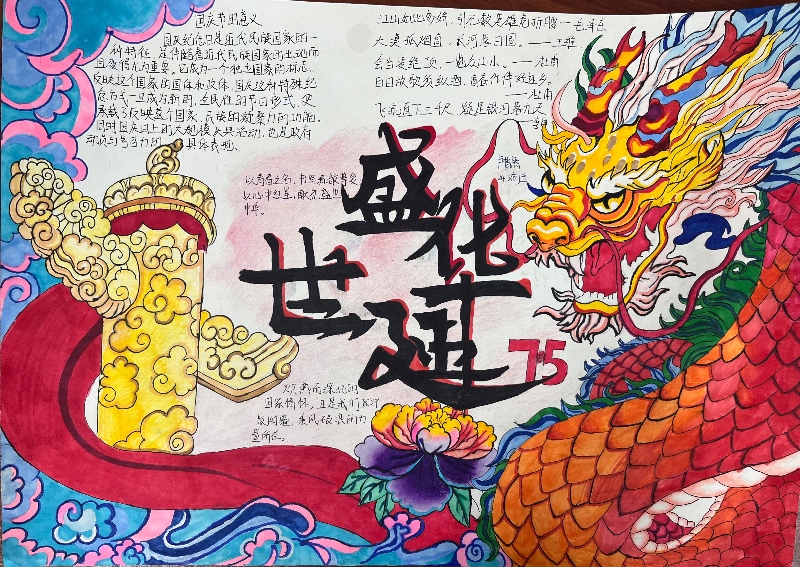 国庆节的意义
国庆纪念日是近代民族国家的一
种特征,是伴随着近代民族国家的出现而
出现的,并且变得尤为重要。它成为一个独立国家的标志,
反映这个国家的国体和政体。国庆这种特殊纪
念方式一旦成为新的、全民性的节日形式,便
承载了反映这个国家、民族的凝聚力的功能。
同时国庆日上的大规模庆典活动,也是政府
动员与号召力的具体表现。
江山如此多娇,引无数英雄竞折腰。——毛泽东
大漠孤烟直,长河落日圆。——王维
会当凌绝顶,一览众山小。——杜甫
白日放歌须纵酒,青春作伴好还乡。
——杜甫
飞流直下三千尺,疑是银河落九天。
以青春之名,书
以心中
中华。
盛
世
华
诞
75
国家情怀,正是我们
乘风破浪的力
量所在。